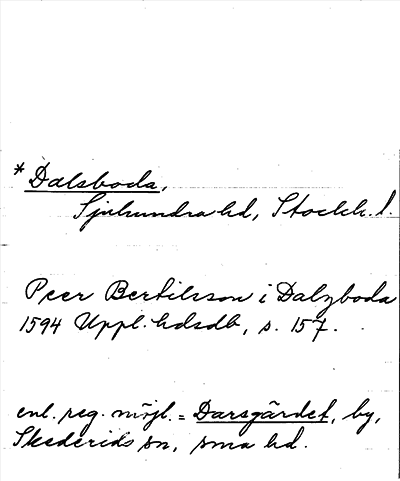 * Dalsboda,
Sjuhundra hd, Stockh. l.
Peer Bertilsson i Dalzboda
1594 Uppl. hdsdb, s. 157.
enl. reg. möjl. = Darsgärdet, by,
Skederids sn, sma hd.